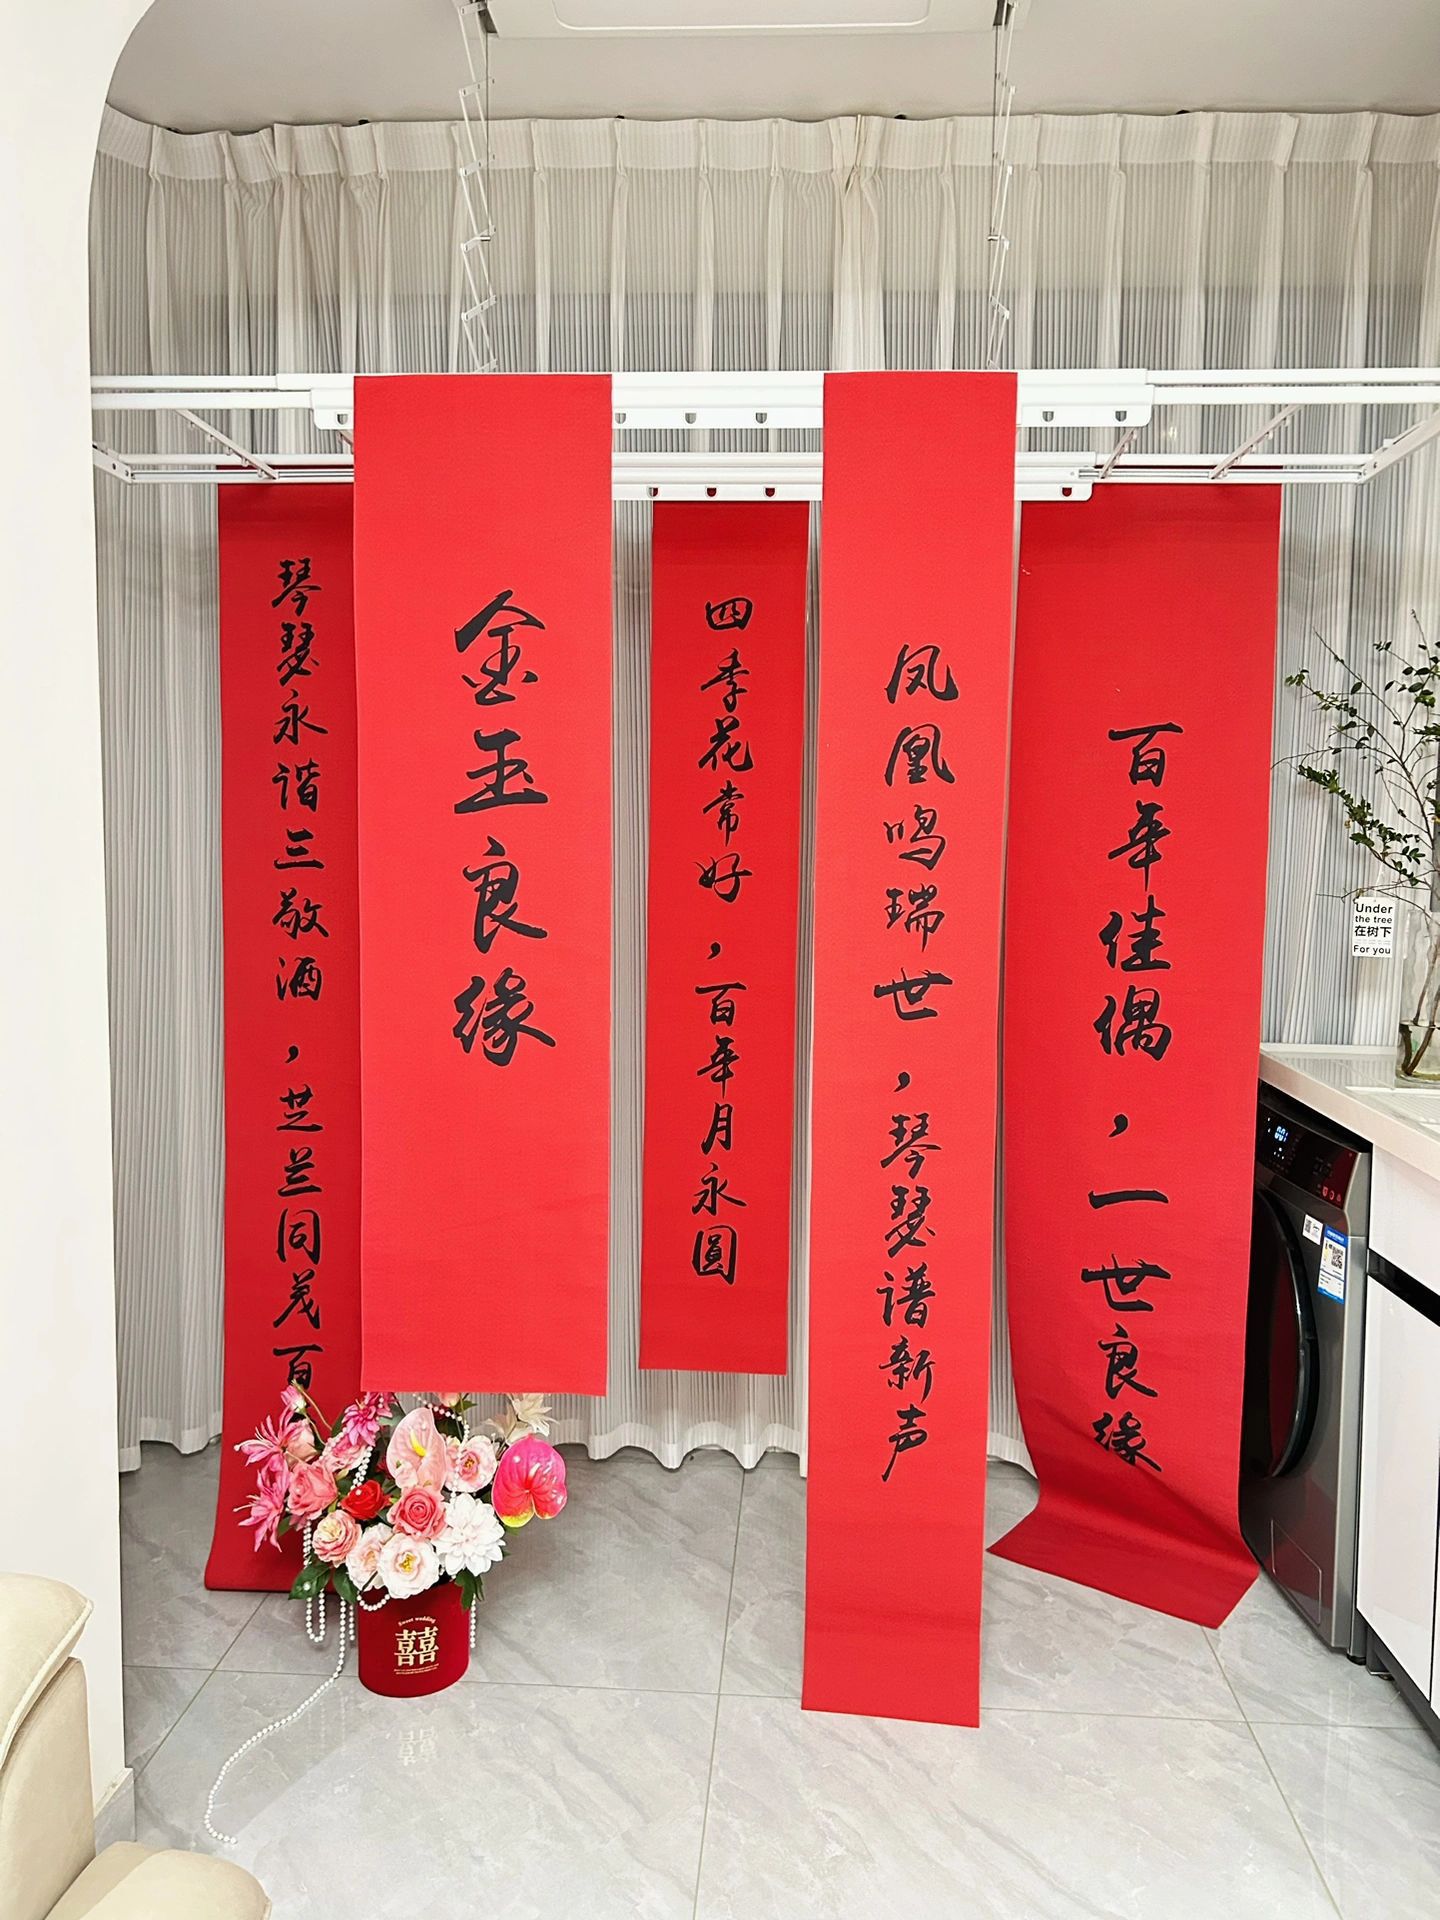 琴瑟永谐三敬酒，芝兰同茂百
金玉良缘
四季花常好，百年月永圆
凤凰鸣瑞世，琴瑟谱新声
百年佳偶，一世良缘
Under
the tree
在树下
For you
Sweet wedding
囍